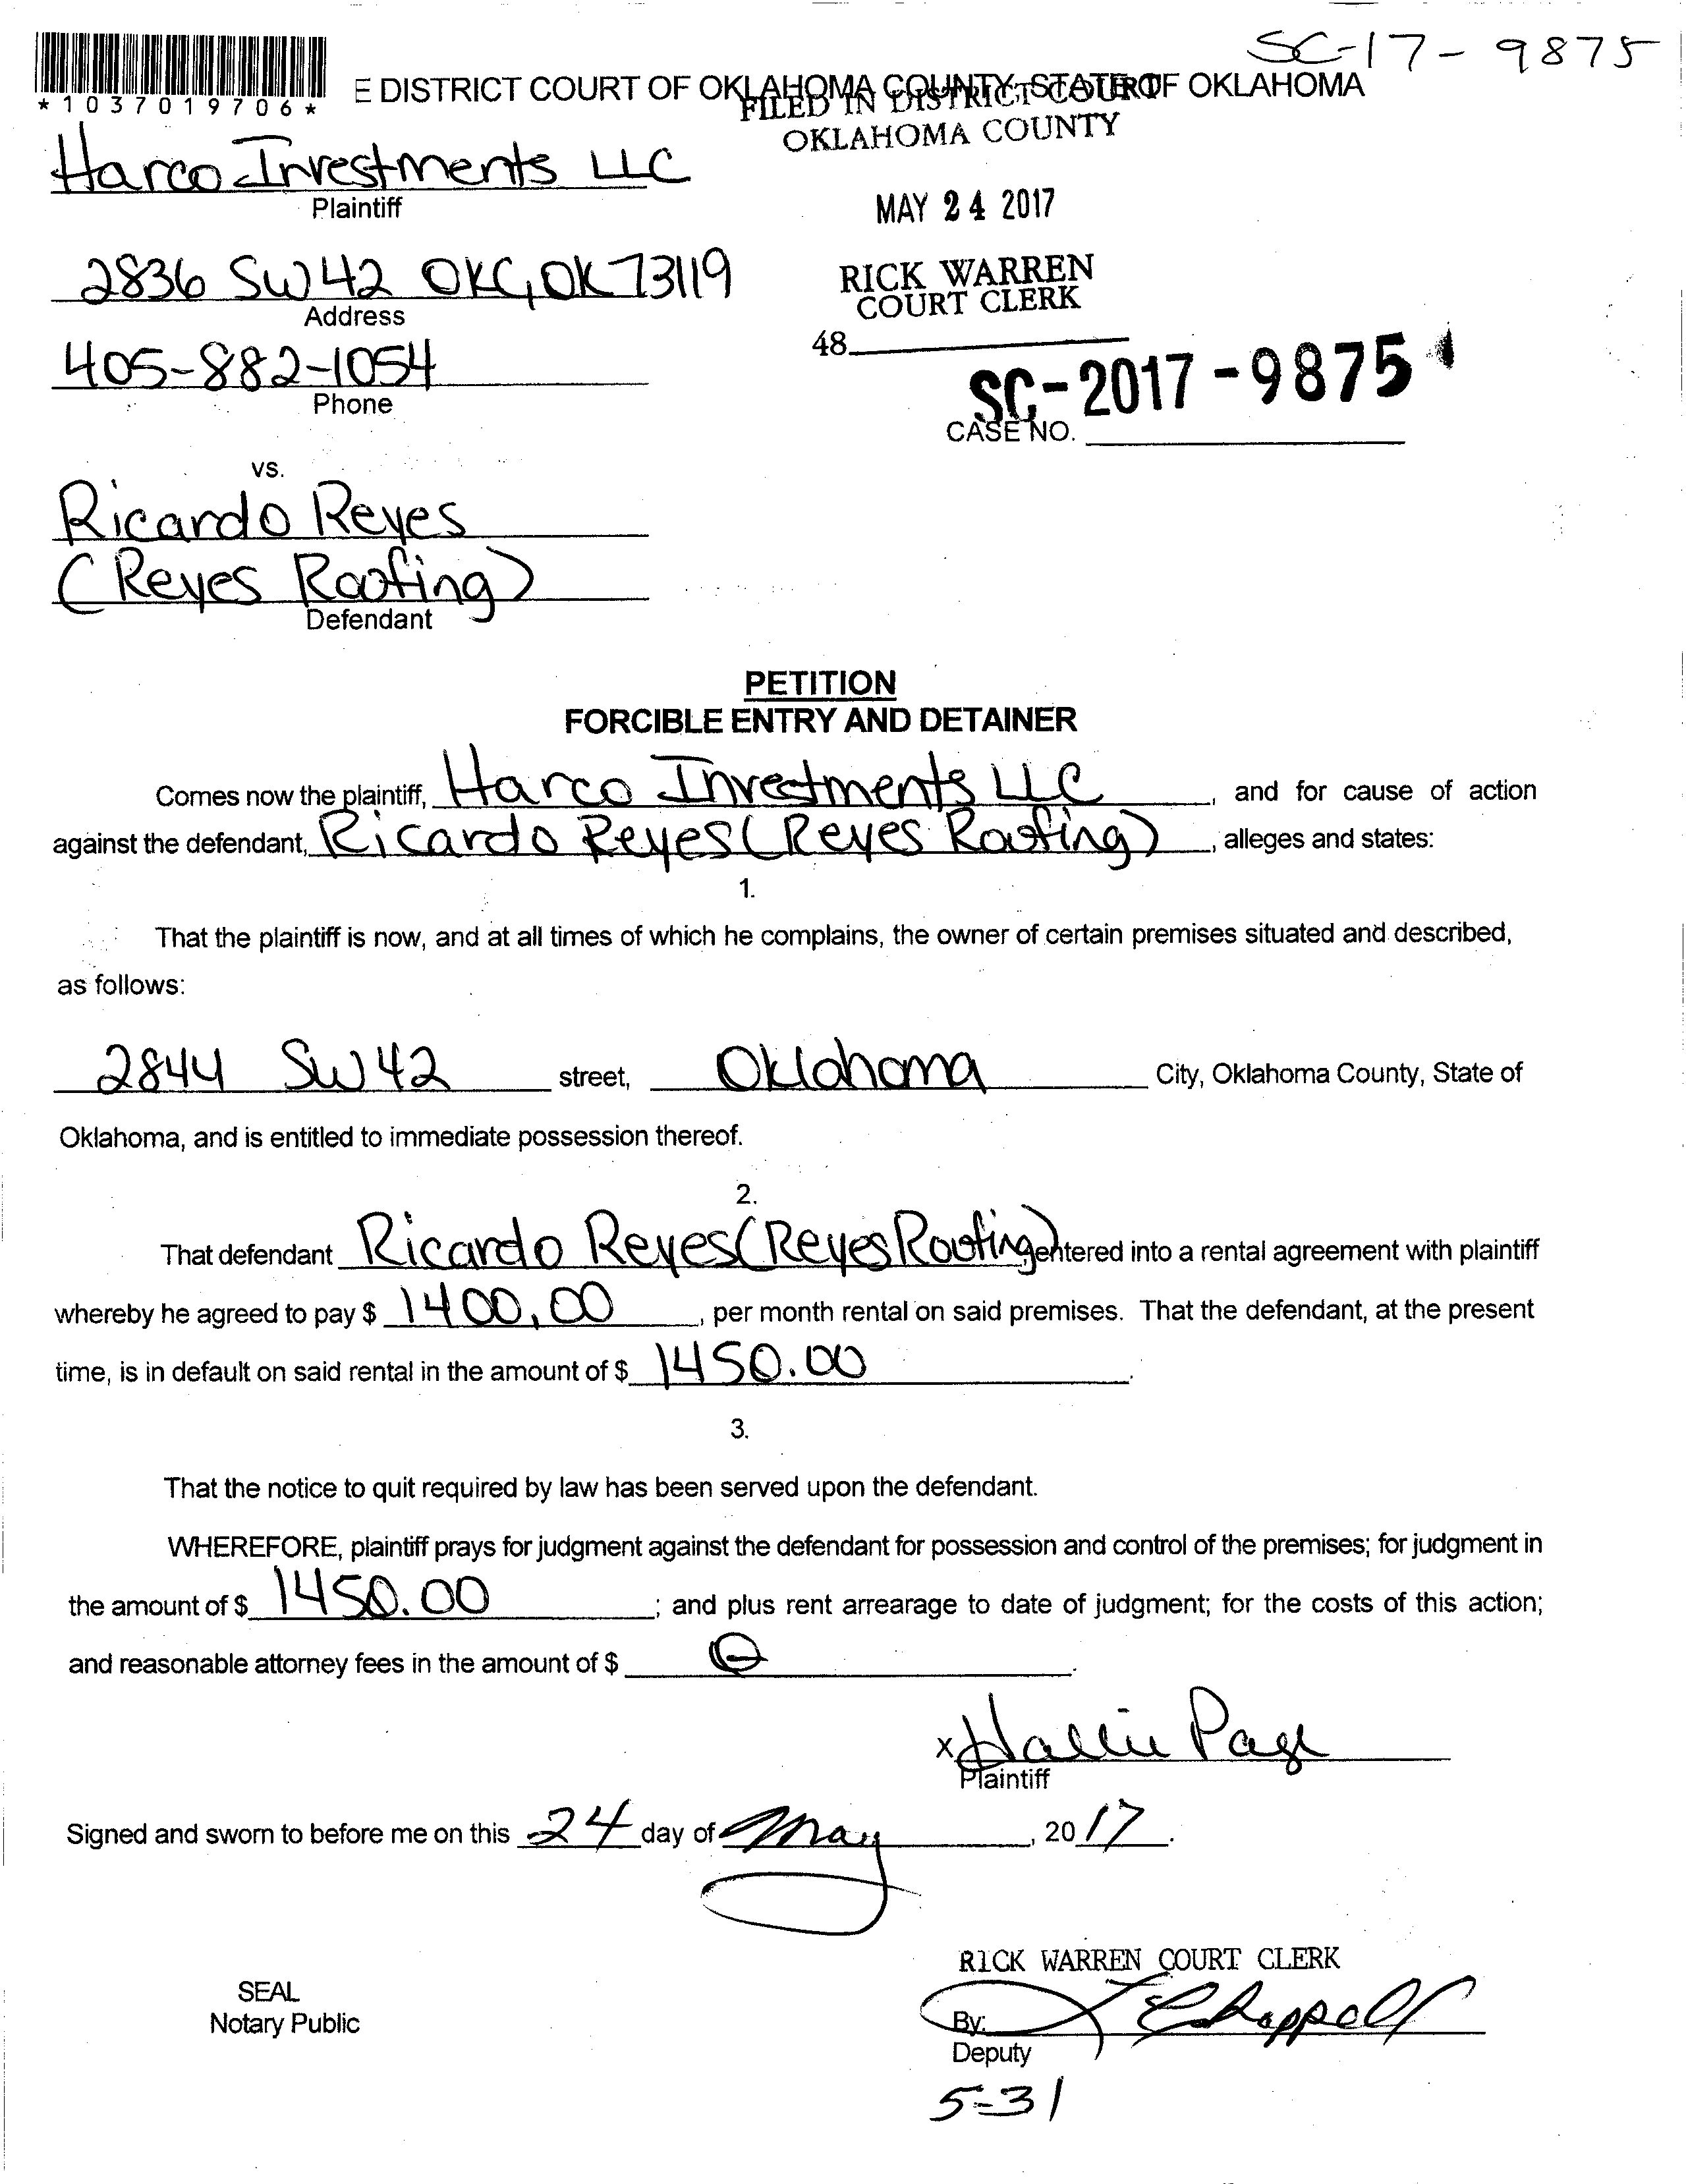 SC-17-9875
*1037019706*
E DISTRICT COURT OF OKLAHOMA COUNTY, STATE OF OKLAHOMA
FILED IN DISTRICT COURT
OKLAHOMA COUNTY
Harco Investments LLC
Plaintiff
MAY 24 2017
2836 SW 42 OKC, OK 73119
Address
RICK WARREN
COURT CLERK
405-882-1054
Phone
48
SC-2017-9875
CASE NO.
vs.
Ricardo Reyes
(Reyes Roofing)
Defendant
PETITION
FORCIBLE ENTRY AND DETAINER
Comes now the plaintiff, Harco Investments LLC, and for cause of action
against the defendant, Ricardo Reyes (Reyes Roofing), alleges and states:
1.
That the plaintiff is now, and at all times of which he complains, the owner of certain premises situated and described,
as follows:
2844 SW 42 street, Oklahoma City, Oklahoma County, State of
Oklahoma, and is entitled to immediate possession thereof.
2.
That defendant Ricardo Reyes (Reyes Roofing), entered into a rental agreement with plaintiff
whereby he agreed to pay $ 1400.00, per month rental on said premises. That the defendant, at the present
time, is in default on said rental in the amount of $ 1450.00.
3.
That the notice to quit required by law has been served upon the defendant.
WHEREFORE, plaintiff prays for judgment against the defendant for possession and control of the premises; for judgment in
the amount of $ 1450.00; and plus rent arrearage to date of judgment; for the costs of this action;
and reasonable attorney fees in the amount of $ 0.
x Hallie Page
Plaintiff
Signed and sworn to before me on this 24 day of May, 2017.
RICK WARREN COURT CLERK
SEAL
Notary Public
By: Chappell
Deputy
5-31